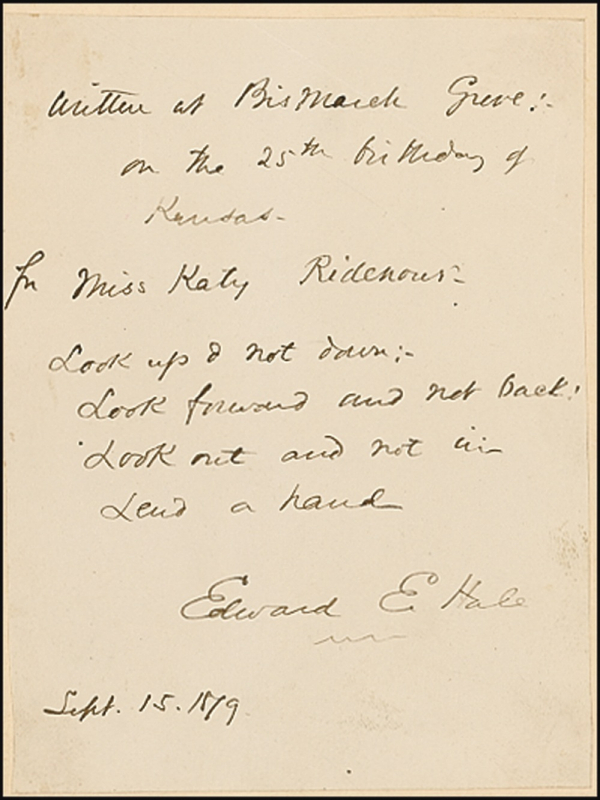 Written at Bismarck Grove:-
on the 25th birthday of
Kansas-
for Miss Katy Ridenour-
Look up & not down;-
Look forward and not back:
Look out and not in-
Lend a hand
Edward E. Hale
Sept. 15. 1879.